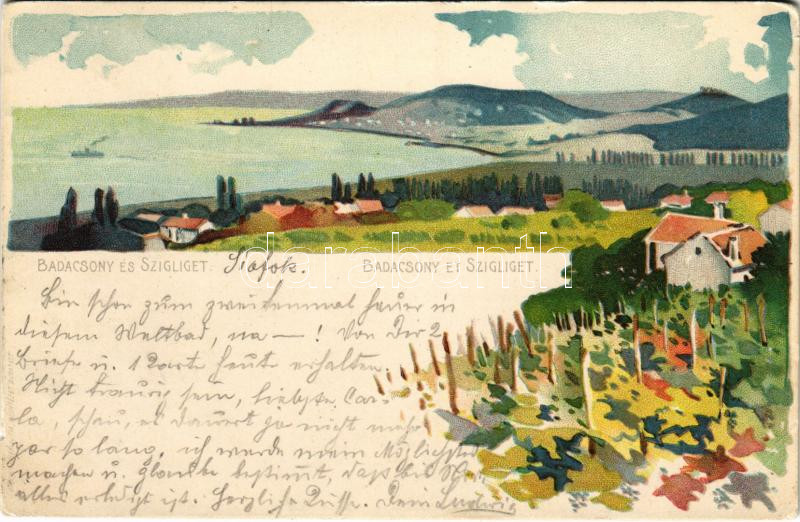 BADACSONY ÉS SZIGLIGET. Siófok. BADACSONY ET SZIGLIGET.
Bin schon zum zweitenmal heuer in
diesem Weltbad, na — ! Von Dir 2
Briefe u. 1 Karte heute erhalten
Nicht traurig sein, liebste Car-
la, schau, es dauert ja nicht mehr
gar so lang, ich werde mein Möglichstes
machen u. glaube bestimmt, daß bis
alles erledigt ist. Herzliche Küsse. Dein Ludwig
darabanth.com